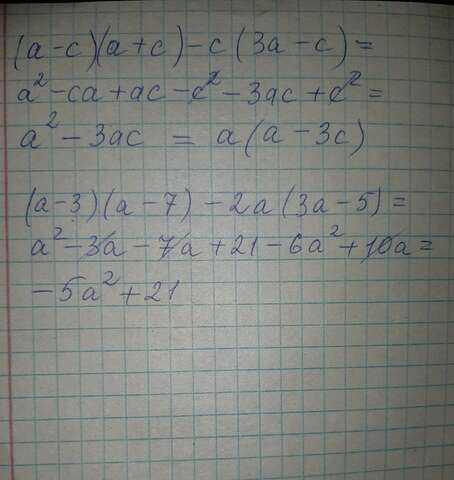 (a-c)(a+c)-c(3a-c)=
a²-ca+ac-c²-3ac+c²=
a²-3ac = a(a-3c)
(a-3)(a-7)-2a(3a-5)=
a²-3a-7a+21-6a²+10a=
-5a²+21